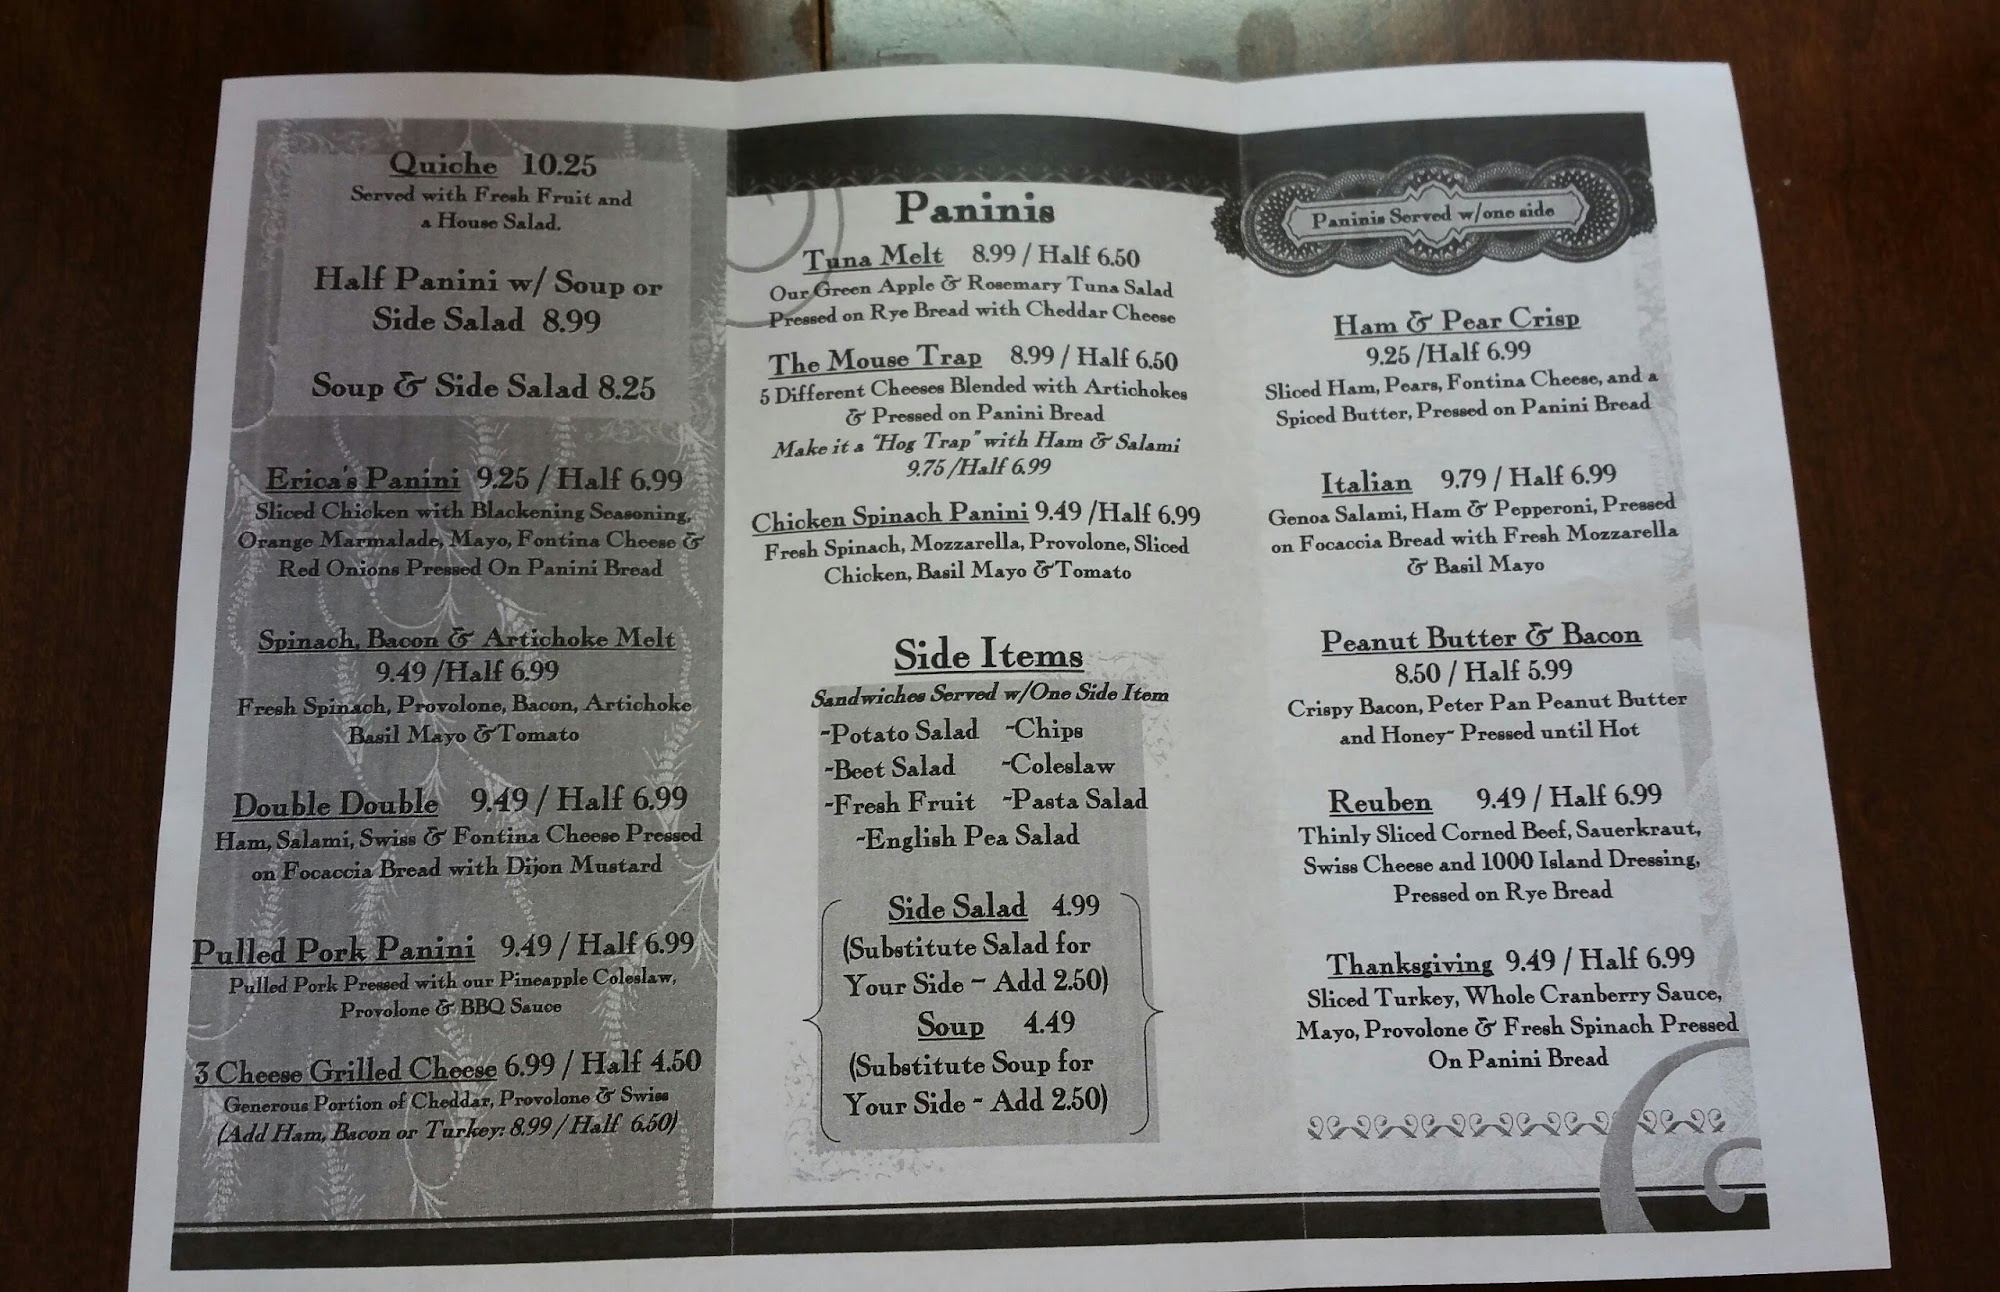 Quiche 10.25
Served with Fresh Fruit and
a House Salad.
Half Panini w/ Soup or
Side Salad 8.99
Soup & Side Salad 8.25
Erica's Panini 9.25 / Half 6.99
Sliced Chicken with Blackening Seasoning,
Orange Marmalade, Mayo, Fontina Cheese &
Red Onions Pressed On Panini Bread
Spinach, Bacon & Artichoke Melt
9.49 /Half 6.99
Fresh Spinach, Provolone, Bacon, Artichoke
Basil Mayo & Tomato
Double Double 9.49 / Half 6.99
Ham, Salami, Swiss & Fontina Cheese Pressed
on Focaccia Bread with Dijon Mustard
Pulled Pork Panini 9.49 / Half 6.99
Pulled Pork Pressed with our Pineapple Coleslaw,
Provolone & BBQ Sauce
3 Cheese Grilled Cheese 6.99 / Half 4.50
Generous Portion of Cheddar, Provolone & Swiss
(Add Ham, Bacon or Turkey: 8.99 / Half 6.50)
Paninis
Tuna Melt 8.99 / Half 6.50
Our Green Apple & Rosemary Tuna Salad
Pressed on Rye Bread with Cheddar Cheese
The Mouse Trap 8.99 / Half 6.50
5 Different Cheeses Blended with Artichokes
& Pressed on Panini Bread
Make it a "Hog Trap" with Ham & Salami
9.75 /Half 6.99
Chicken Spinach Panini 9.49 /Half 6.99
Fresh Spinach, Mozzarella, Provolone, Sliced
Chicken, Basil Mayo & Tomato
Side Items
Sandwiches Served w/One Side Item
~Potato Salad ~Chips
~Beet Salad ~Coleslaw
~Fresh Fruit ~Pasta Salad
~English Pea Salad
Side Salad 4.99
(Substitute Salad for
Your Side ~ Add 2.50)
Soup 4.49
(Substitute Soup for
Your Side ~ Add 2.50)
Paninis Served w/one side
Ham & Pear Crisp
9.25 /Half 6.99
Sliced Ham, Pears, Fontina Cheese, and a
Spiced Butter, Pressed on Panini Bread
Italian 9.79 / Half 6.99
Genoa Salami, Ham & Pepperoni, Pressed
on Focaccia Bread with Fresh Mozzarella
& Basil Mayo
Peanut Butter & Bacon
8.50 / Half 5.99
Crispy Bacon, Peter Pan Peanut Butter
and Honey~ Pressed until Hot
Reuben 9.49 / Half 6.99
Thinly Sliced Corned Beef, Sauerkraut,
Swiss Cheese and 1000 Island Dressing,
Pressed on Rye Bread
Thanksgiving 9.49 / Half 6.99
Sliced Turkey, Whole Cranberry Sauce,
Mayo, Provolone & Fresh Spinach Pressed
On Panini Bread